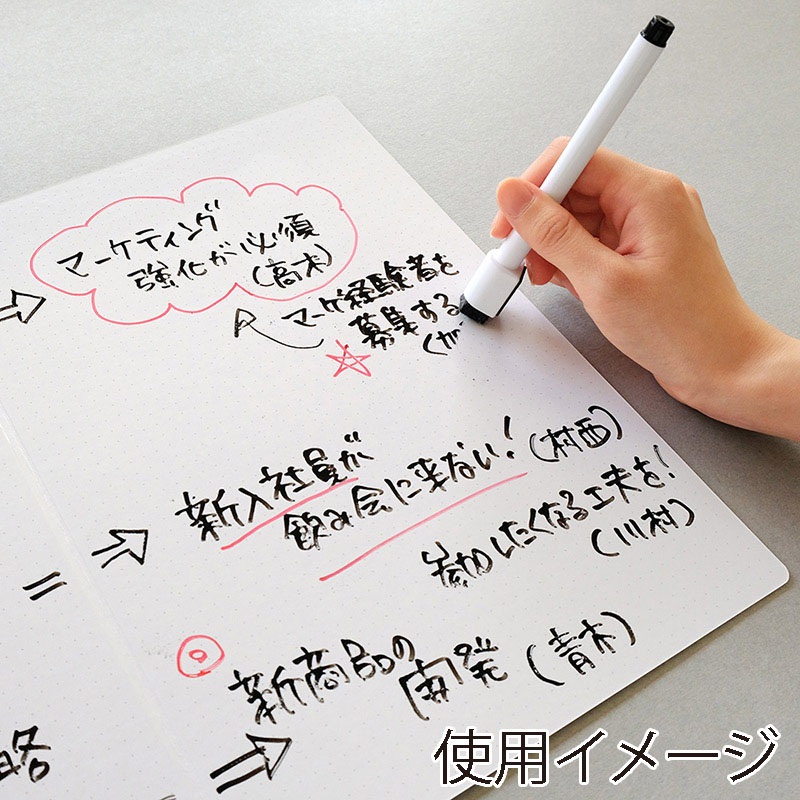 マーケティング
強化が必須
(高木)
マーケ経験者を
募集する
(か
新入社員が
飲み会に来ない! (村西)
参加したくなる工夫を!
(川村)
新商品の
開発 (青木)
略
使用イメージ